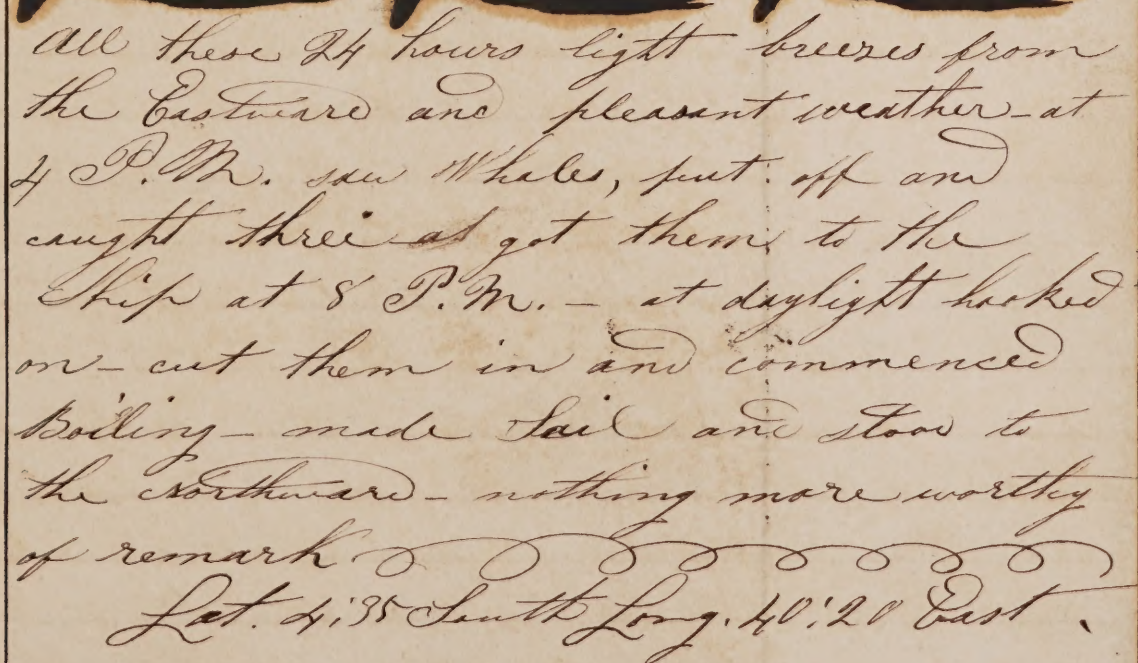 All these 24 hours light breezes from
the Eastward and pleasant weather - at
4 P.M. saw Whales, put off and
caught three got them to the
Ship at 8 P.M. - at daylight hooked
on - cut them in and commenced
Boiling - made Sail and stood to
the Northward - nothing more worthy
of remark
Lat. 4:35 South Long. 40:20 East.